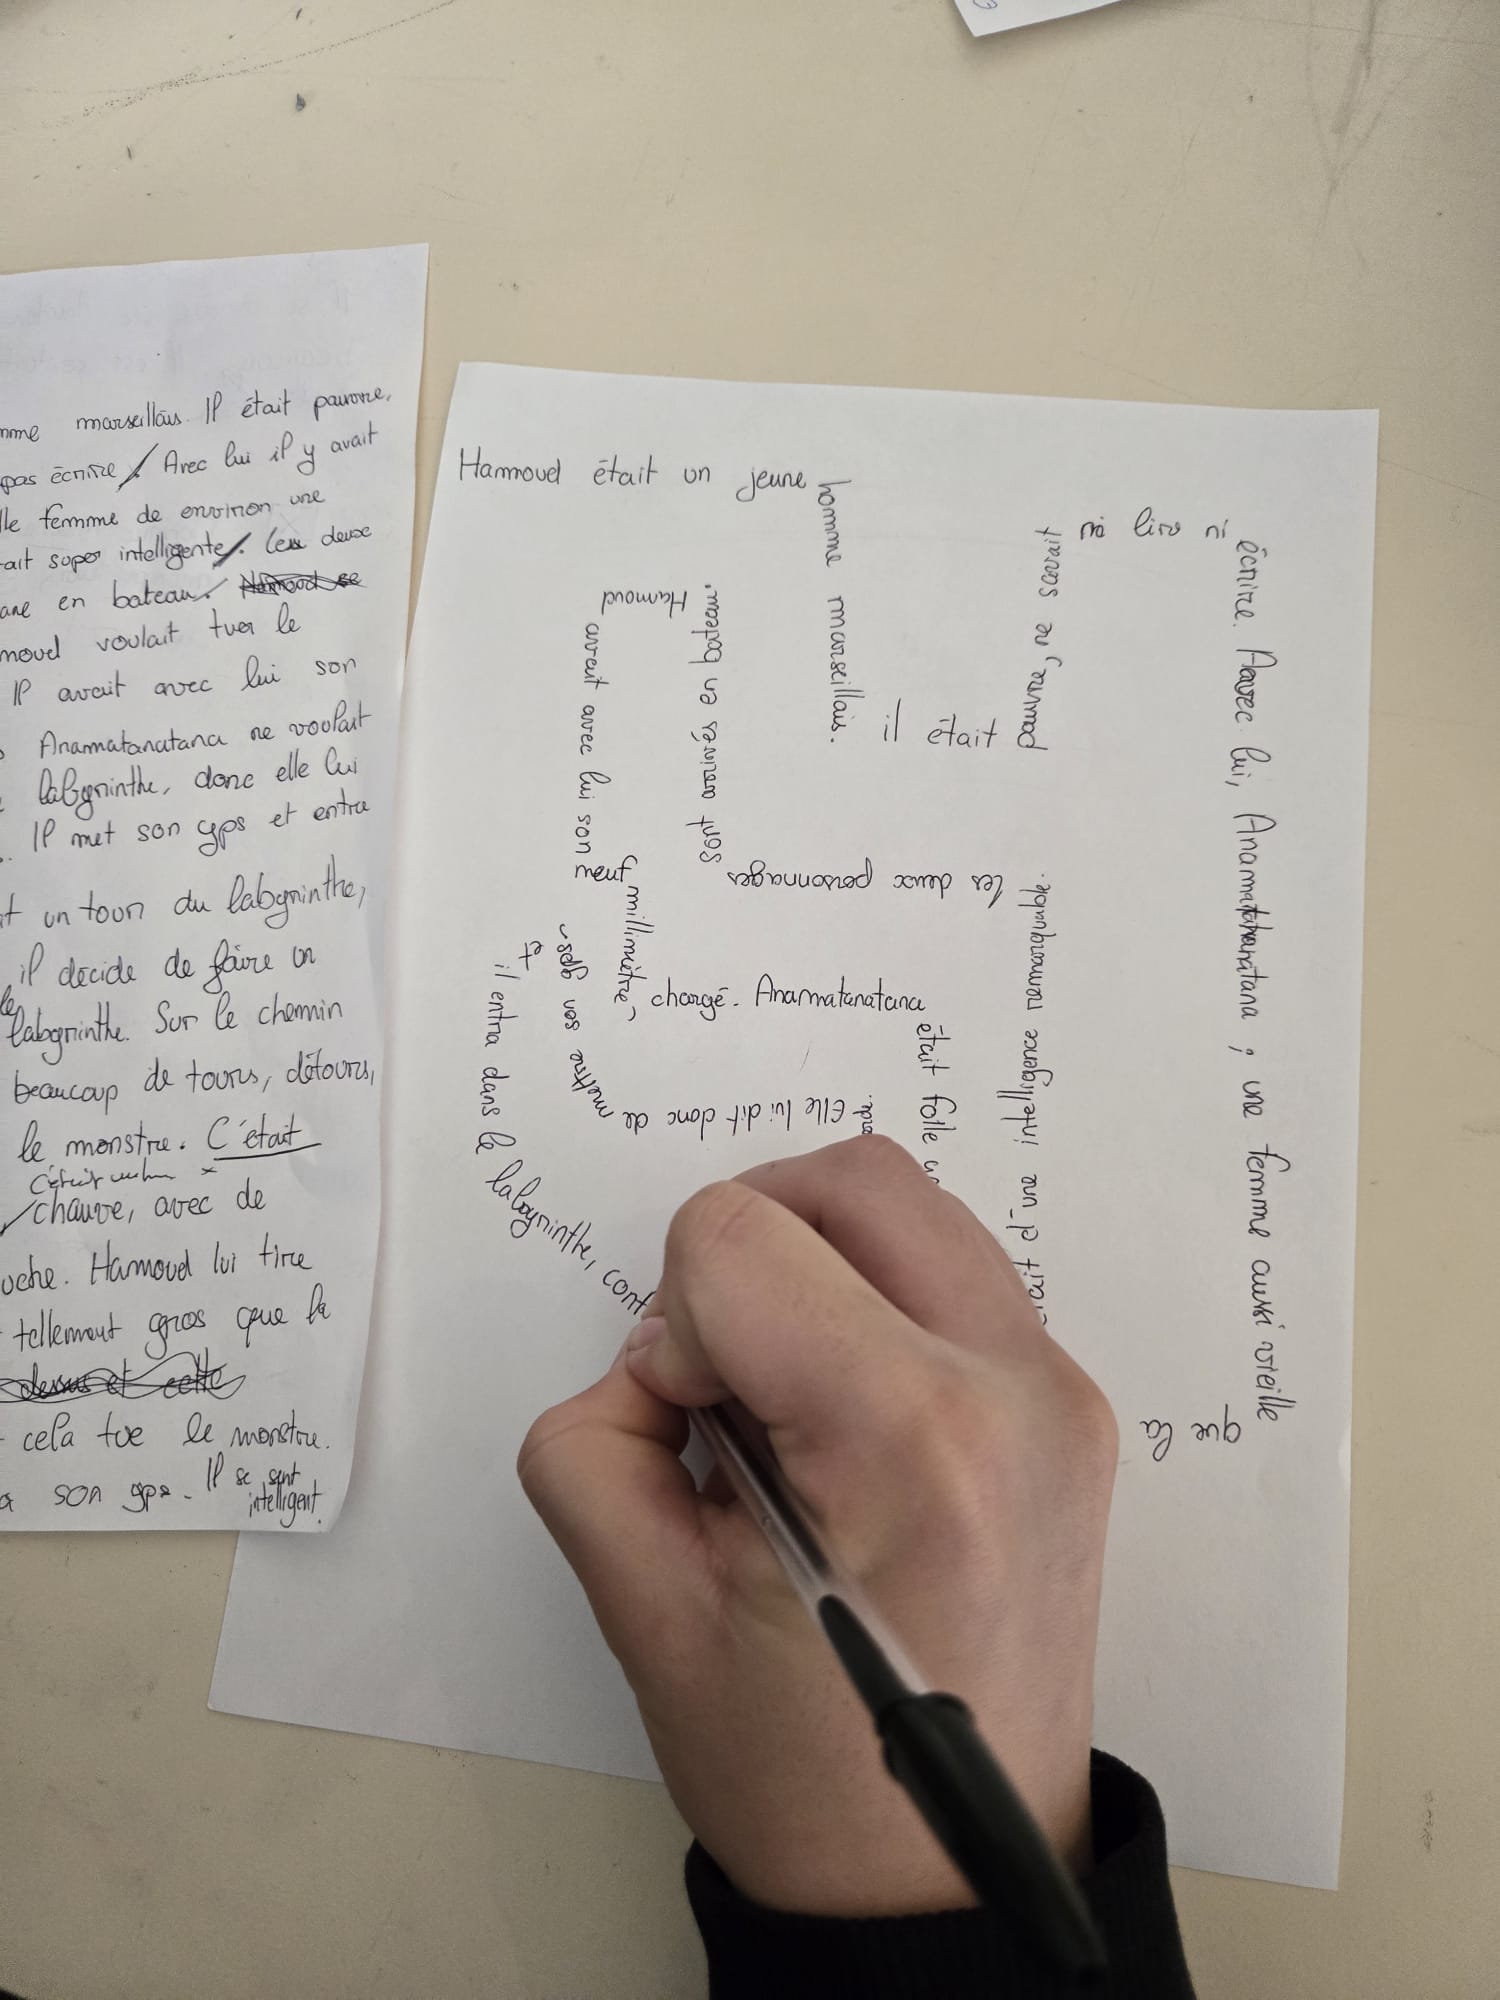 marseillais. Il était pauvre,
pas écrire. Avec lui il y avait
femme de environ une
super intelligente. Les deux
en bateau.
voulait tuer le
Il avait avec lui son
Anamatanatana ne voulait
labyrinthe, donc elle lui
Il met son gps et entra
un tour du labyrinthe,
il décide de faire un
labyrinthe. Sur le chemin
beaucoup de tours, détours,
le monstre. C'était
C'était
chauve, avec de
Hamoud lui tire
tellement gros que la
dessus et cette
cela tue le monstre.
son gps. Il se sent
intelligent.
Hamoud était un jeune
homme marseillais.
il était
pauvre, ne savait
ni lire ni
écrire. Aavec lui, Anamatanatana ; une femme aussi vieille
que la
d'une intelligence remarquable.
les deux personnages
sont arrivés en bateau.
Hamoud
avait avec lui son
neuf
millimètre,
chargé. Anamatanatana
était folle
Elle lui dit donc de
mettre son gps
et
il entra dans le
labyrinthe,